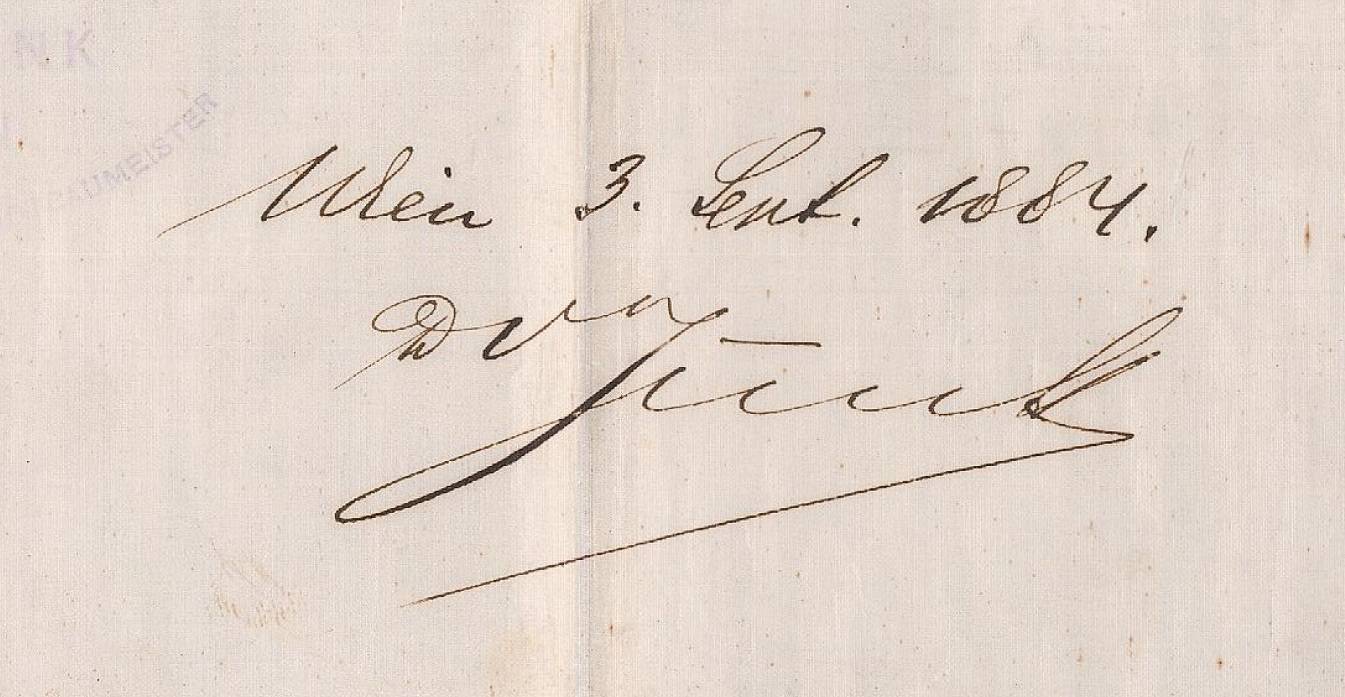 NK
BAUMEISTER
Wien 3. Sept. 1884.
Dr Funk